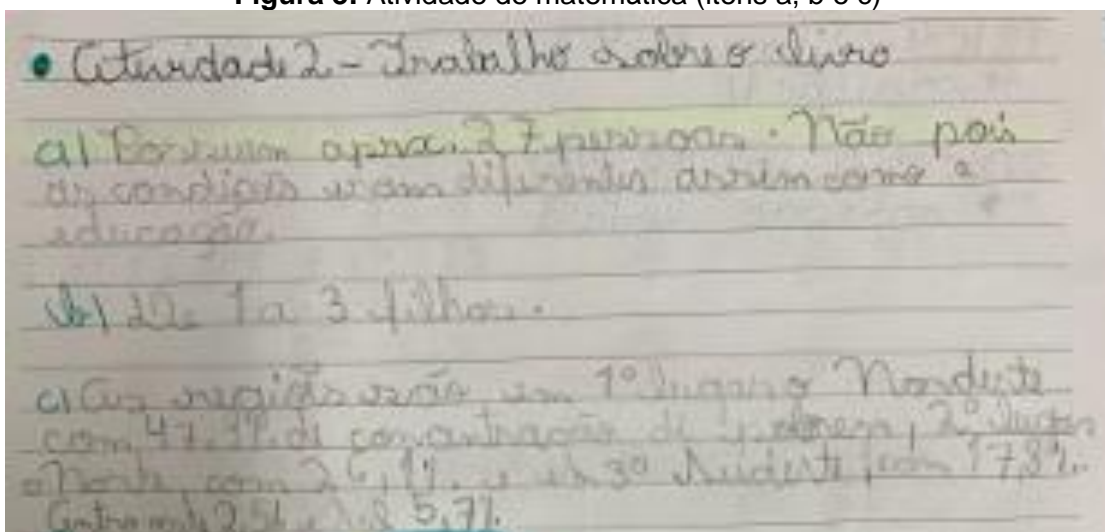 Figura 3: Atividade de matemática (itens a, b e c)
• Atividade 2 - Trabalho sobre o livro
a) Possuem aprox. 27 pessoas. Não pois
as condições eram diferentes assim como a
educação.
b) De 1 a 3 filhos.
c) As regiões são em 1º lugar o Nordeste
com 47,9% de concentração de pobreza, 2º lugar
o Norte com 26,1% e em 3º Sudeste com 17,8%.
Centro 2,5% e Sul 5,7%.